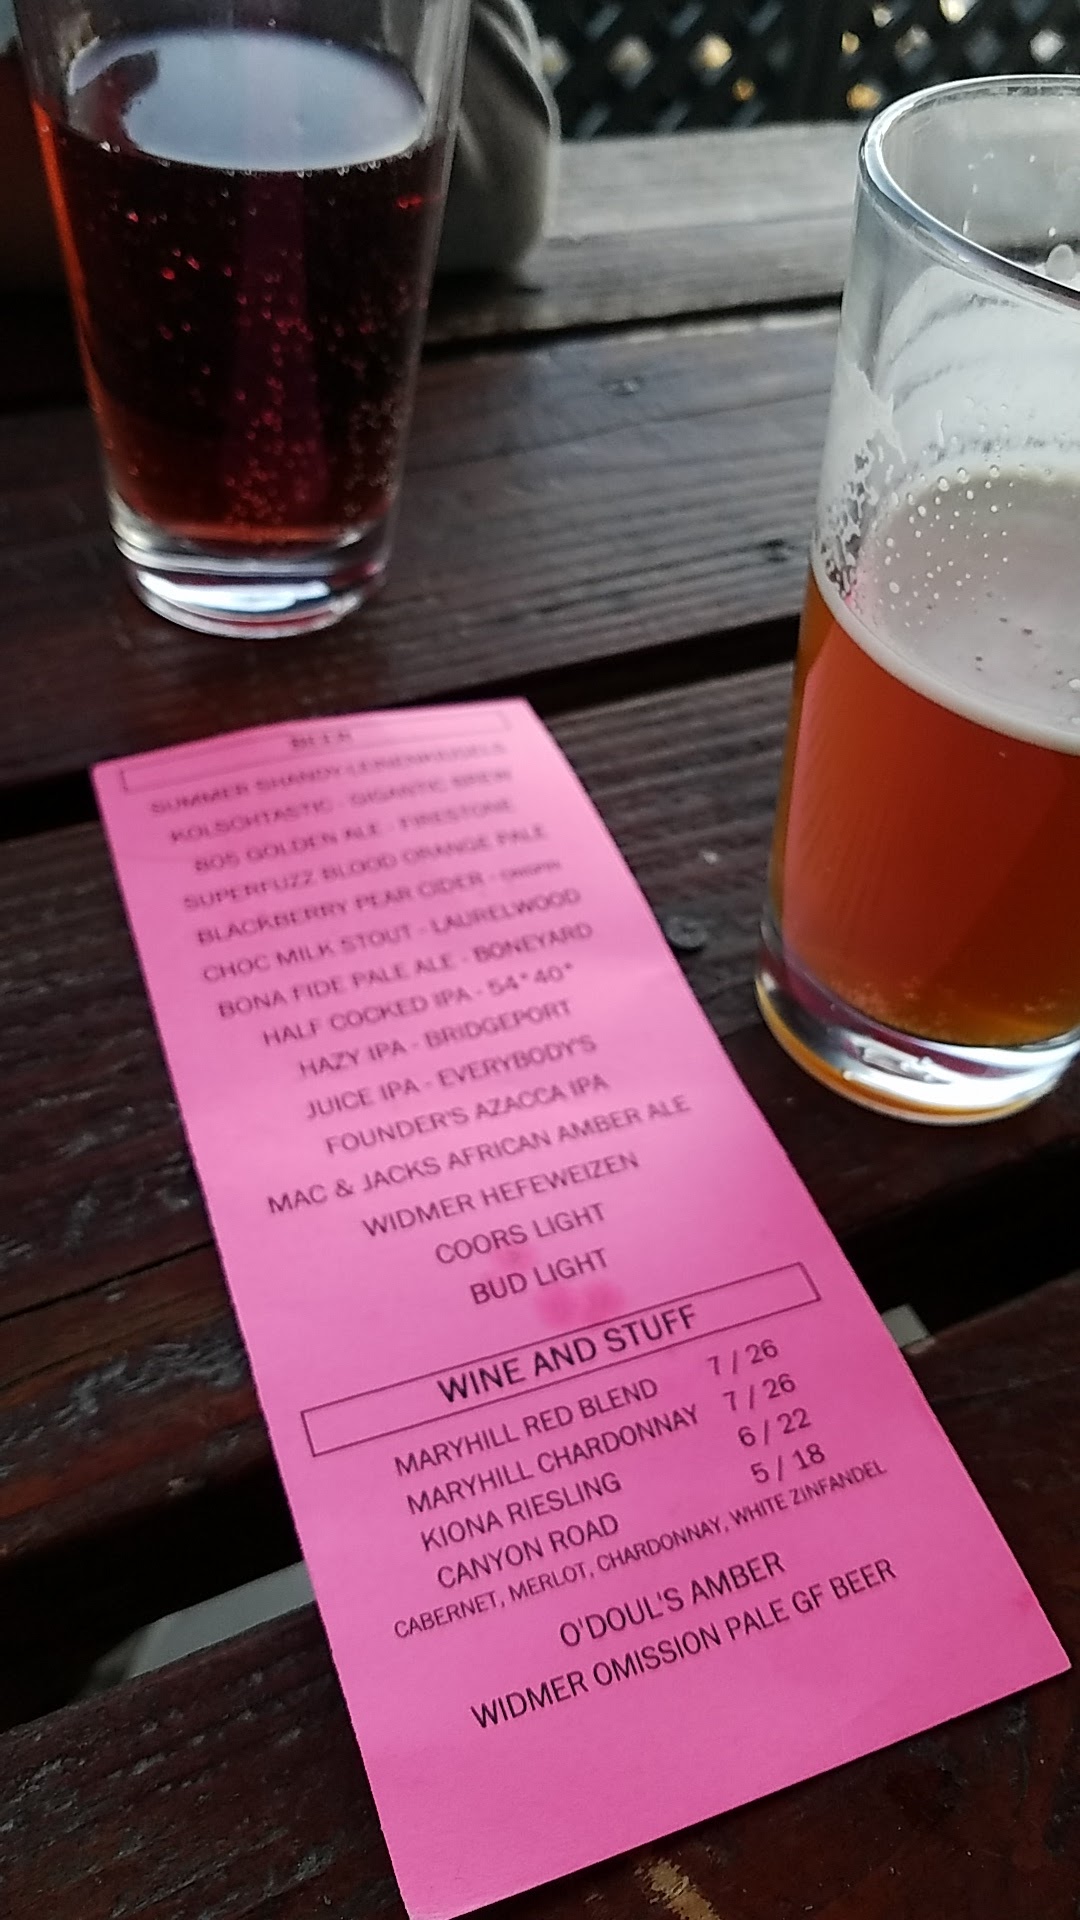 BEER
SUMMER SHANDY-LEINENKUGELS
KOLSCHTASTIC - GIGANTIC BREW
805 GOLDEN ALE - FIRESTONE
SUPERFUZZ BLOOD ORANGE PALE
BLACKBERRY PEAR CIDER -
CHOC MILK STOUT - LAURELWOOD
BONA FIDE PALE ALE - BONEYARD
HALF COCKED IPA - 54°40°
HAZY IPA - BRIDGEPORT
JUICE IPA - EVERYBODY'S
FOUNDER'S AZACCA IPA
MAC & JACKS AFRICAN AMBER ALE
WIDMER HEFEWEIZEN
COORS LIGHT
BUD LIGHT
WINE AND STUFF
MARYHILL RED BLEND 7 / 26
MARYHILL CHARDONNAY 7 / 26
KIONA RIESLING 6 / 22
CANYON ROAD 5 / 18
CABERNET, MERLOT, CHARDONNAY, WHITE ZINFANDEL
O'DOUL'S AMBER
WIDMER OMISSION PALE GF BEER